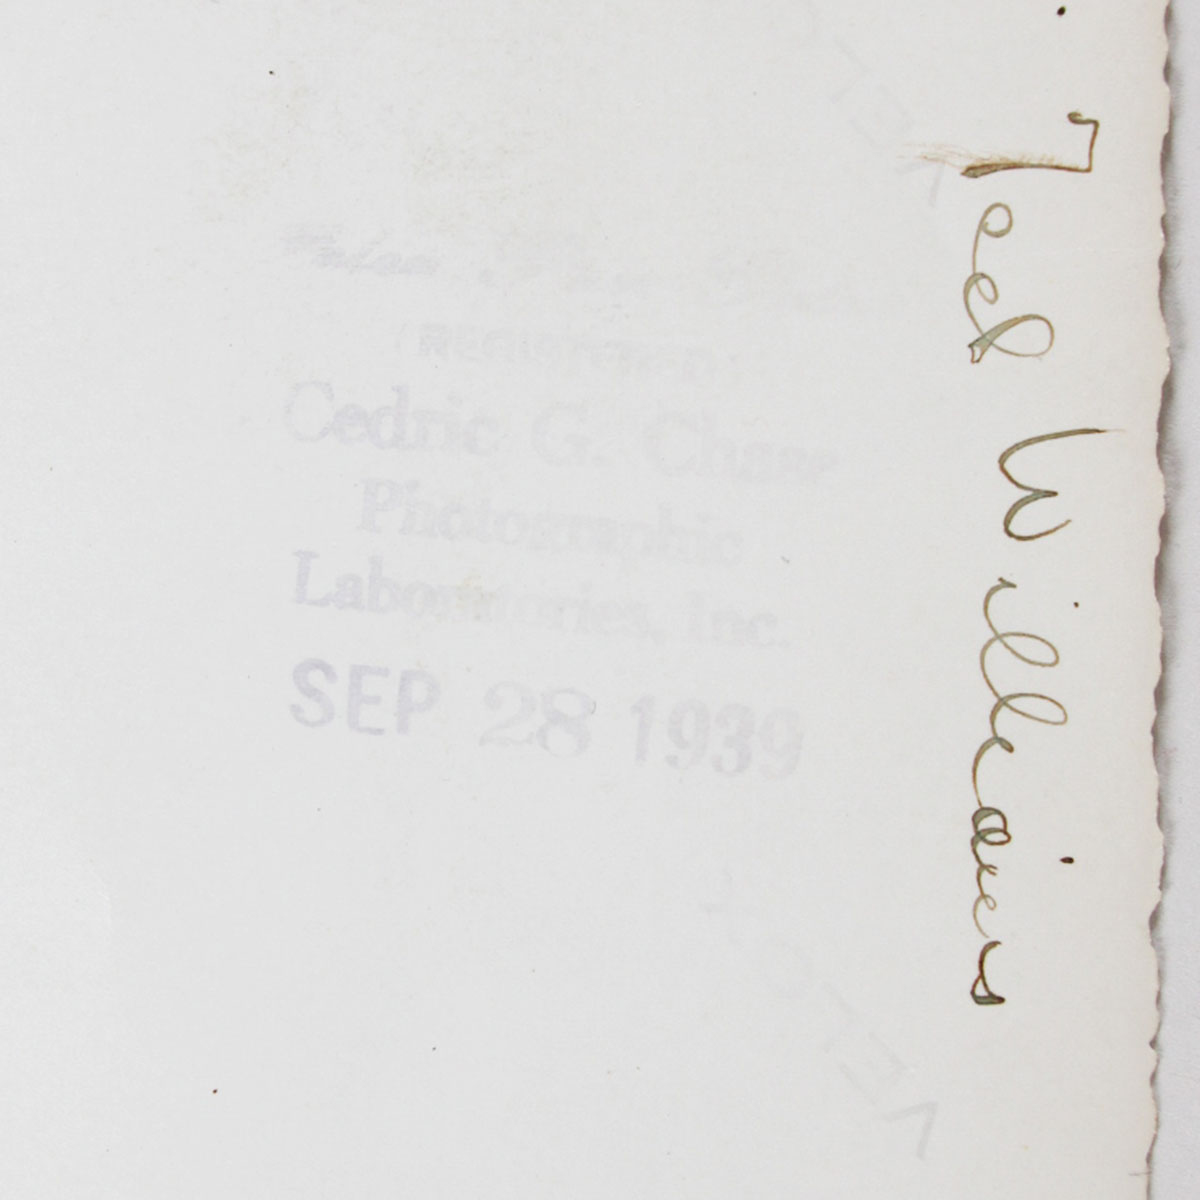 REGISTERED
Cedric G. Chase
Photographic
Laboratories, Inc.
SEP 28 1939
Ted Williams
VELOX